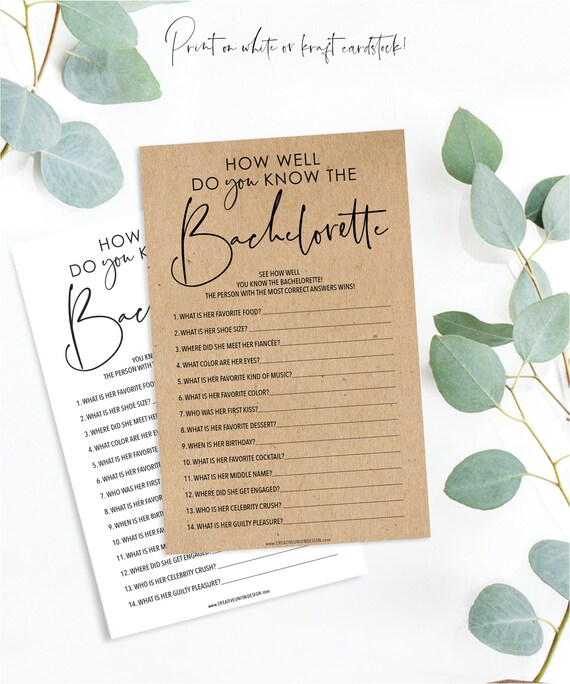 Print on white or kraft cardstock!
HOW WELL
DO you KNOW THE
Bachelorette
SEE HOW WELL
YOU KNOW THE BACHELORETTE!
THE PERSON WITH THE MOST CORRECT ANSWERS WINS!
1. WHAT IS HER FAVORITE FOOD?
2. WHAT IS HER SHOE SIZE?
3. WHERE DID SHE MEET HER FIANCÉE?
4. WHAT COLOR ARE HER EYES?
5. WHAT IS HER FAVORITE KIND OF MUSIC?
6. WHAT IS HER FAVORITE COLOR?
7. WHO WAS HER FIRST KISS?
8. WHAT IS HER FAVORITE DESSERT?
9. WHEN IS HER BIRTHDAY?
10. WHAT IS HER FAVORITE COCKTAIL?
11. WHAT IS HER MIDDLE NAME?
12. WHERE DID SHE GET ENGAGED?
13. WHO IS HER CELEBRITY CRUSH?
14. WHAT IS HER GUILTY PLEASURE?
www.CREATIVEUNIONDESIGN.com
HOW
DO you K
Bac
YOU KN
THE PERSON WITH
1. WHAT IS HER FAVORITE FOOD
2. WHAT IS HER SHOE SIZE?
3. WHERE DID SHE MEET HER
4. WHAT COLOR ARE HER EYES
5. WHAT IS HER FAVORITE
6. WHAT IS HER FAVORITE
7. WHO WAS HER FIRST
8. WHAT IS HER FAVOR
9. WHEN IS HER BIRTH
10. WHAT IS HER FAVO
11. WHAT IS HER M
12. WHERE DID SHE GET ENGAGED?
13. WHO IS HER CELEBRITY CRUSH?
14. WHAT IS HER GUILTY PLEASURE?
www.CREATIVEUNIONDESIGN.com